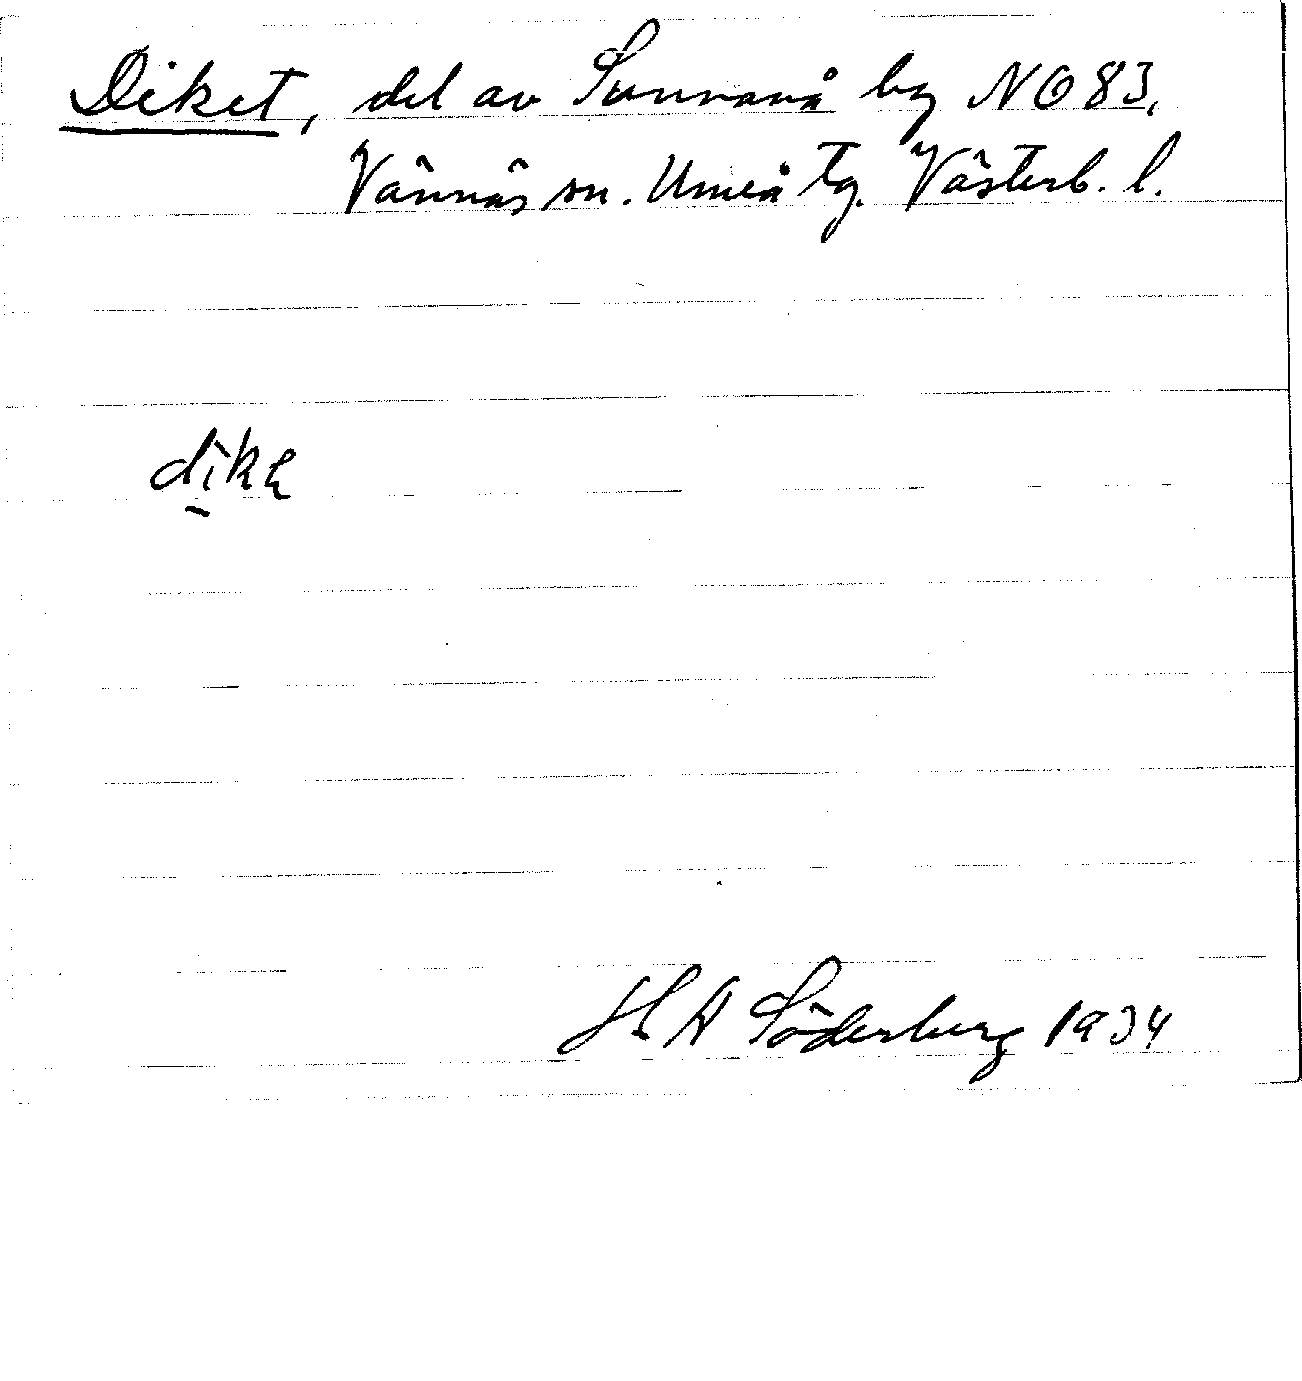 Diket, del av Sunnanå by NO 83,
Vännäs sn. Umeå tg. Västerb. l.
H A Söderberg 1934